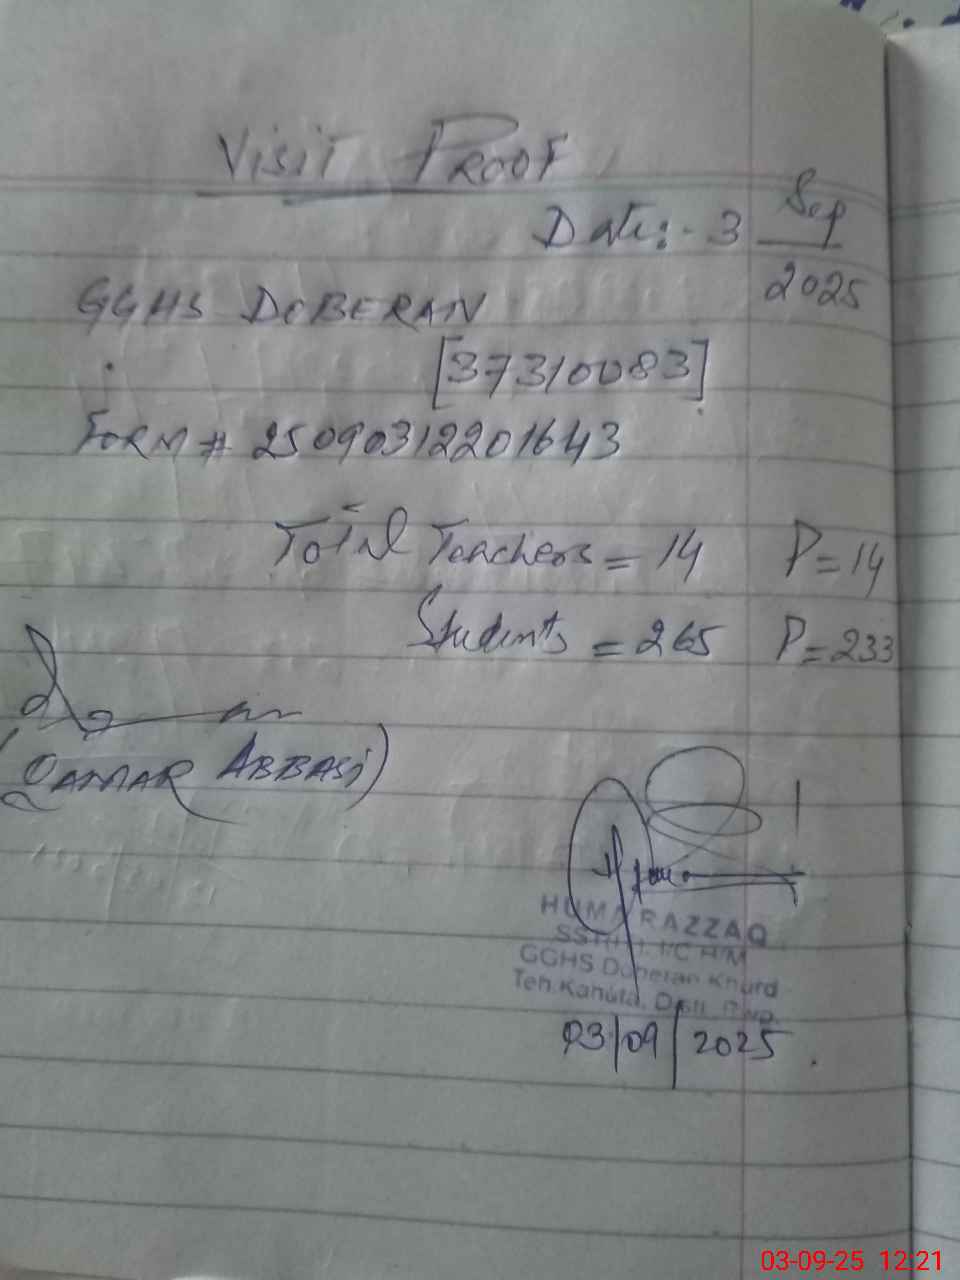 Visit PROOF
Date:- 3 Sep
2025
GGHS DOBERAN
[37310083]
FORM # 25090312201643
Total Teachers = 14 P=14
Students = 265 P=233
(QAMAR ABBASI)
HUMA RAZZAQ
I/C H/M
GGHS Doberan Khurd
Teh.Kahuta, Distt.
03/09/2025
03-09-25 12:21